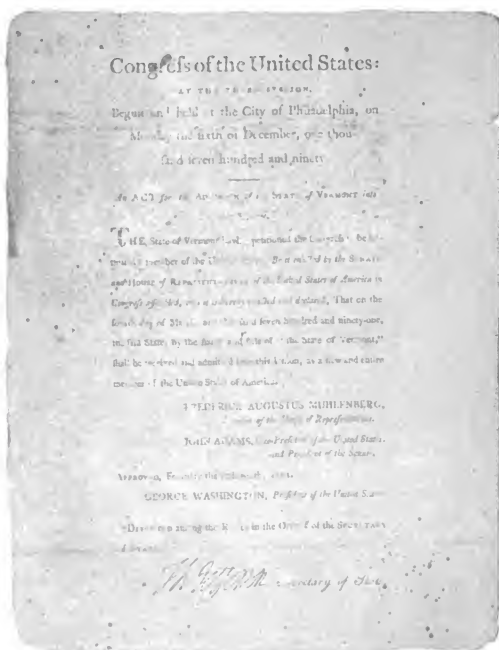 Congreſs of the United States:
AT THE THIRD SESSION,
Begun and held at the City of Philadelphia, on
Monday the ſixth of December, one thou-
ſand ſeven hundred and ninety
An ACT for the Admiſſion of the STATE of VERMONT into
THE State of Vermont having petitioned the Congreſs to be
a member of the United Be it enacted by the SENATE
and HOUSE of REPRESENTATIVES of the United States of America in
Congreſs and declared, That on the
fourth day of March, one thouſand ſeven hundred and ninety-one,
the ſaid State, by the name and of "the State of Vermont,"
ſhall be received and admitted into this Union, as a new and entire
member of the United States of America.
FREDERICK AUGUSTUS MUHLENBERG,
Speaker of the Houſe of Repreſentatives.
JOHN ADAMS, Vice-Preſident of the United States,
and Preſident of the Senate.
APPROVED, February the
GEORGE WASHINGTON, Preſident of the United States
among the in the Office of the SECRETARY
Secretary of State